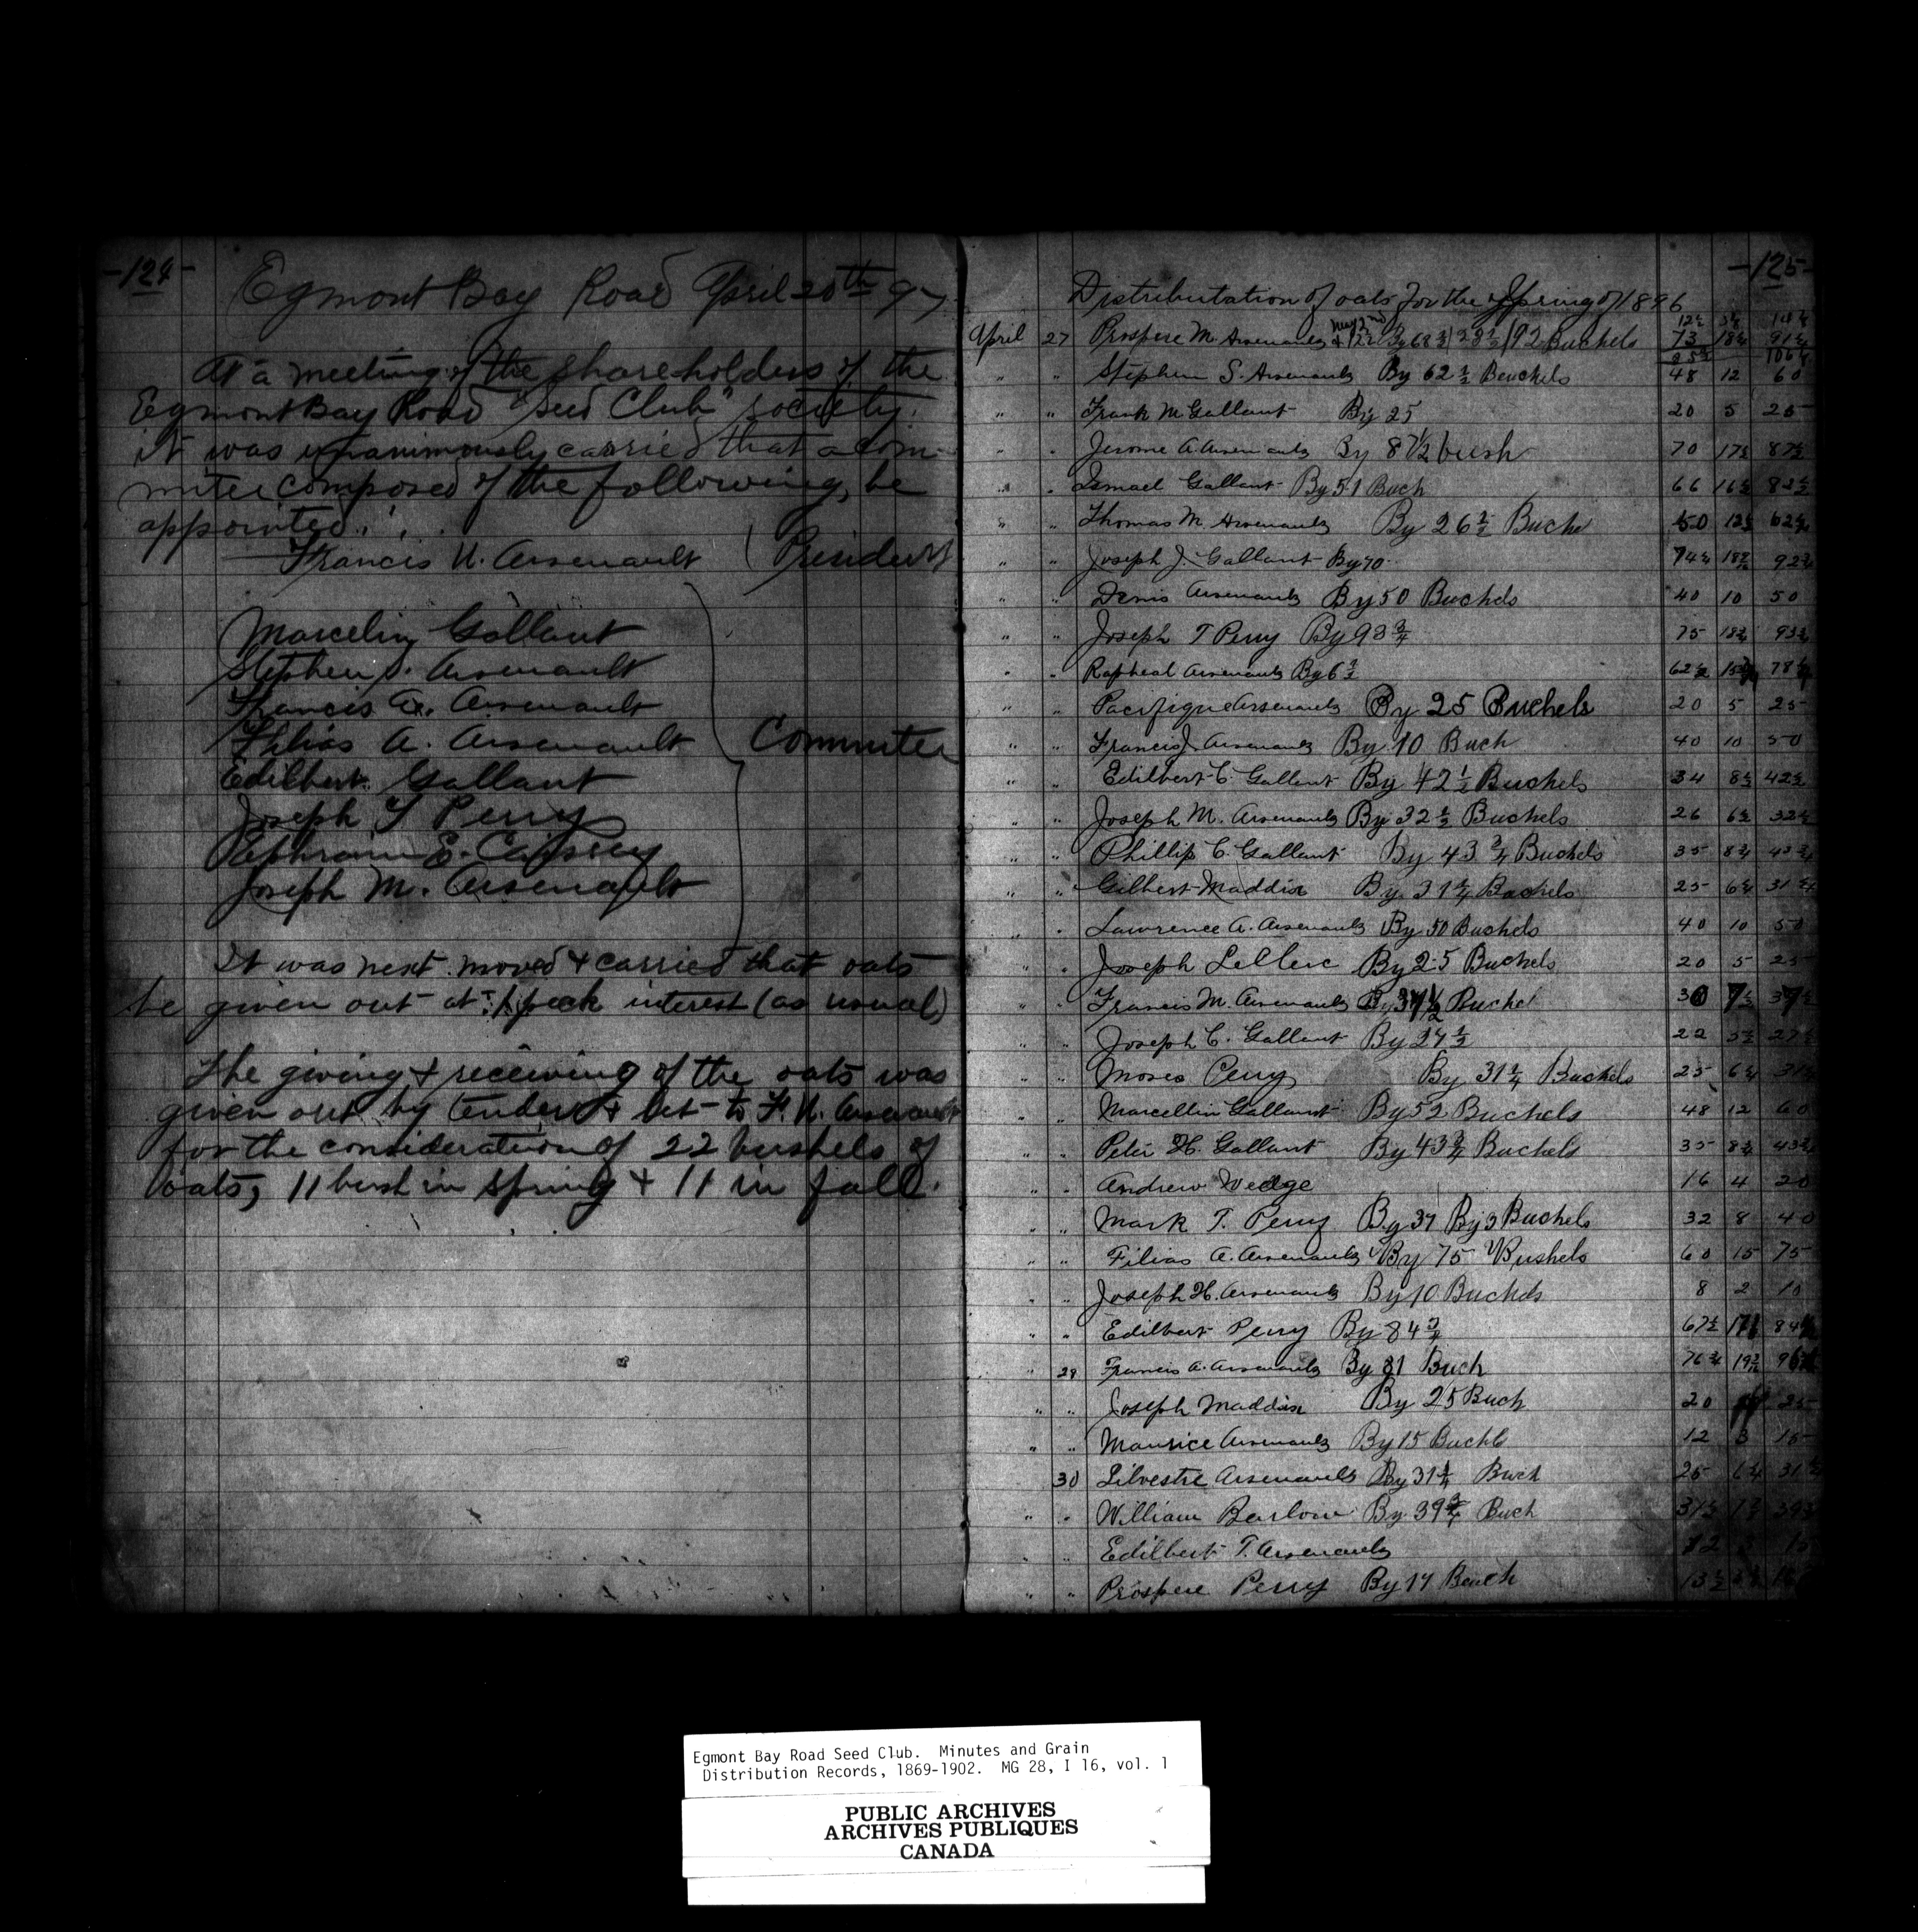 -124-
Egmont Bay Road April 20th 97
At a meeting of the shareholders of the
Egmont Bay Road "Seed Club" society.
it was unanimously carried that a com-
mitee composed of the following, be
appointed.
Francis U. Arsenault ( President
Marcelin Gallant
Stephen S. Arsenault
Francis A. Arsenault
Philias A. Arsenault Commitee
Edilbert Gallant
Joseph T Perry
Ephraim E. Caissey
Joseph M. Arsenault
It was next moved & carried that oats
be given out at 1 peck interest (as usual)
The giving & receiving of the oats was
given out by tender & let to F. U. Arsenault
for the consideration of 22 bushels of
oats, 11 bush in spring & 11 in fall.
-125-
Distributation of oats for the Spring of 1896
April 27 Prospere M. Arsenault 92 Buchels 73 18¼ 91¼
" " Stephen S. Arsenault By 62½ Beuchels 48 12 60
" " Frank M Gallant By 25 20 5 25
" " Jerome A. Arsenault By 87½ bush 70 17½ 87½
" " Ismael Gallant By 51 Buch 66 16½ 82½
" " Thomas M. Arsenault By 26½ Buche 50 12½ 62½
" " Joseph J. Gallant By 70
" " Denis Arsenault By 50 Buchels 40 10 50
" " Joseph T Perry By 93¾ 75 18¾ 93¾
" " Rapheal Arsenault By 62½
" " Pacifique Arsenault By 25 Buchels 20 5 25
" " Francis J. Arsenault By 10 Buch 40 10 50
" " Edilbert C. Gallant By 42½ Buchels 34 8½ 42½
" " Joseph M. Arsenault By 32½ Buchels 26 6½ 32½
" " Phillip C. Gallant By 43¾ Buchels 35 8¾ 43¾
" " Gilbert Maddix By 31¼ Buchels 25 6¼ 31¼
" " Lawrence A. Arsenault By 50 Buchels 40 10 50
" " Joseph LeClerc By 25 Buchels 20 5 25
" " Francis M. Arsenault By 37½ Buchel 30 7½ 37½
" " Joseph C. Gallant By 27½ 22 5½ 27½
" " Moses Perry By 31¼ Buchels 25 6¼ 31¼
" " Marcellin Gallant By 52 Buchels 48 12 60
" " Peter H. Gallant By 43¾ Buchels 35 8¾ 43¾
" " Andrew Wedge 16 4 20
" " Mark T. Perry By 37 By 3 Buchels 32 8 40
" " Filias A. Arsenault By 75 Bushels 60 15 75
" " Joseph H. Arsenault By 10 Buchels 8 2 10
" " Edilbert Perry By 84¾ 67½
" 28 Francis A. Arsenault By 81 Buch 76¾
" " Joseph Maddix By 25 Buch 20 25
" " Maurice Arsenault By 15 Buchls 12 3 15
30 Silvestre Arsenault By 31¼ Buch 25 6¼ 31¼
" " William Barlow By 39¾ Buch
" " Edilbert T. Arsenault
" " Prospere Perry By 17 Beuch
Egmont Bay Road Seed Club. Minutes and Grain
Distribution Records, 1869-1902. MG 28, I 16, vol. 1
PUBLIC ARCHIVES
ARCHIVES PUBLIQUES
CANADA